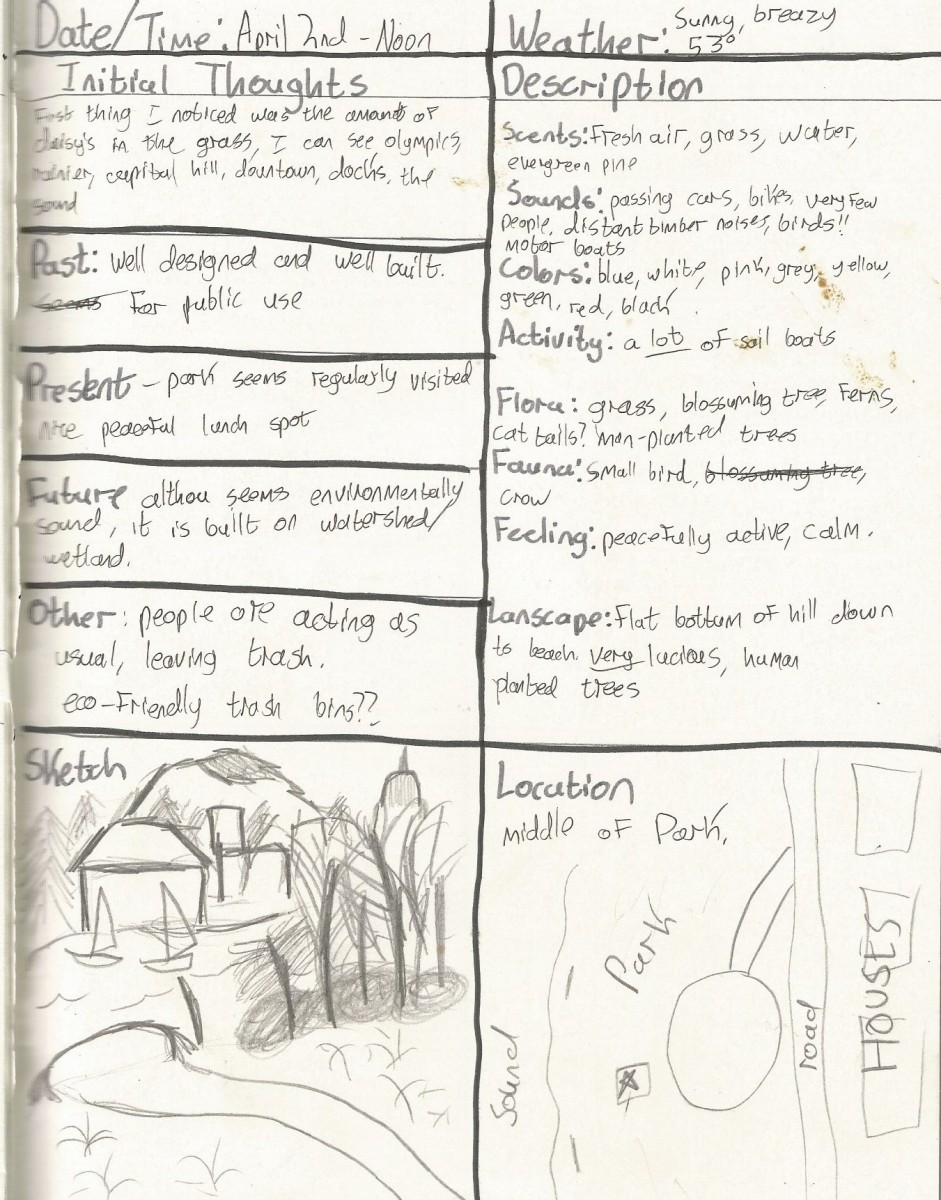 Date/Time: April 2nd - Noon
Weather: Sunny, breazy
53°
Initial Thoughts
First thing I noticed was the amount of
daisy's in the grass, I can see olympics,
rainier, capital hill, downtown, docks, the
sound
Past: well designed and well built.
seems For public use
Present - park seems regularly visited
nice peaceful lunch spot
Future althou seems environmentally
sound, it is built on watershed/
wetland.
Other: people are acting as
usual, leaving trash.
eco-Friendly trash bins??
Description
Scents: Fresh air, grass, water,
evergreen pine
Sounds: passing cars, bikes, very Few
people, distant timber noises, birds!!
motor boats
Colors: blue, white, pink, grey, yellow,
green, red, black
Activity: a lot of sail boats
Flora: grass, blossuming tree, Ferns,
cat tails? man-planted trees
Fauna: small bird, blossuming tree,
crow
Feeling: peacefully active, calm.
Lanscape: Flat bottom of hill down
to beach. very lucious, human
planted trees
Sketch
Location
middle of Park,
Park
Sound
road
HOUSES